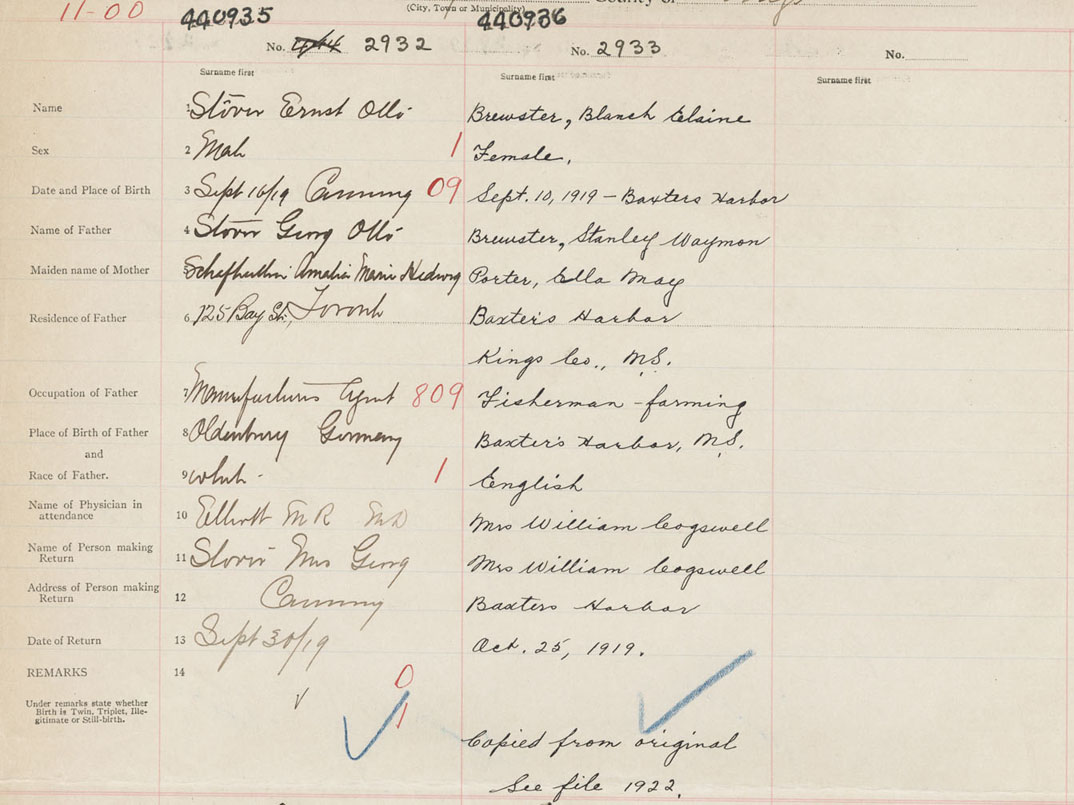 11-00
(City, Town or Municipality) County of Kings
440935 440936
No. 2932 No. 2933 No.
Surname first Surname first Surname first
Name 1 Stöver Ernst Otto Brewster, Blanch Elaine
Sex 2 Male 1 Female.
Date and Place of Birth 3 Sept 10/19 Canning 09 Sept. 10, 1919 - Baxters Harbor
Name of Father 4 Stöver Georg Otto Brewster, Stanley Waymon
Maiden name of Mother 5 Amalia Marie Hedwig Porter, Ella May
Residence of Father 6 125 Bay St., Toronto Baxter's Harbor
Kings Co., N.S.
Occupation of Father 7 Manufacturers Agent 809 Fisherman - farming
Place of Birth of Father 8 Oldenburg Germany Baxter's Harbor, N.S.
and
Race of Father. 9 white - 1 English
Name of Physician in
attendance 10 Elliott M R MD Mrs William Cogswell
Name of Person making
Return 11 Stöver Mrs Georg Mrs William Cogswell
Address of Person making
Return 12 Canning Baxters Harbor
Date of Return 13 Sept 30/19 Oct. 25, 1919.
REMARKS 14 0
Under remarks state whether
Birth is Twin, Triplet, Ille-
gitimate or Still-birth. 1
Copied from original
See file 1922.